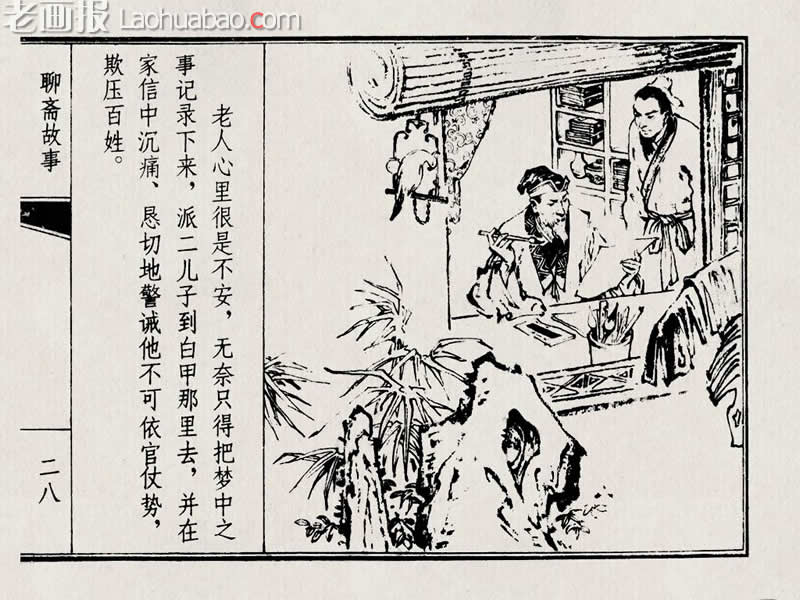 老画报 Laohuabao.com
老人心里很是不安，无奈只得把梦中之
事记录下来，派二儿子到白甲那里去，并在
家信中沉痛、恳切地警诫他不可依官仗势，
欺压百姓。
聊斋故事
二八